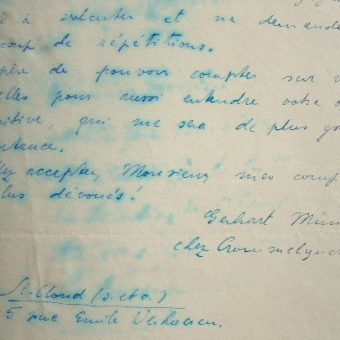 à exécuter et ne demande
coup de répétitions.
père de pouvoir compter sur v
elles pour aussi entendre votre o
sitive, qui me sera de plus gr
ortance.
ez accepter, Monsieur, mes comp
lus dévoués!
Gerhart Mün
chez Crommelynck
St. Cloud (S. et O.)
5 rue Emile Verhaeren.